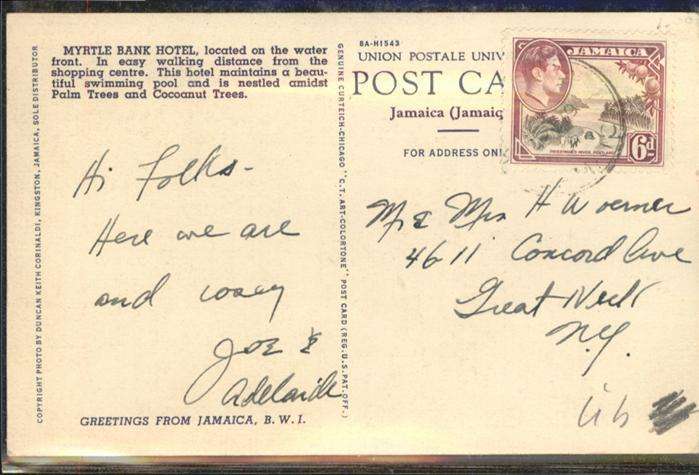 MYRTLE BANK HOTEL, located on the water
front. In easy walking distance from the
shopping centre. This hotel maintains a beau-
tiful swimming pool and is nestled amidst
Palm Trees and Cocoanut Trees.
COPYRIGHT PHOTO BY DUNCAN KEITH CORINALDI, KINGSTON, JAMAICA, SOLE DISTRIBUTOR
Hi Folks-
Here we are
and cozy
Joe &
Adelaide
GREETINGS FROM JAMAICA, B. W. I.
GENUINE CURTEICH-CHICAGO "C.T. ART-COLORTONE" POST CARD (REG. U.S. PAT. OFF.)
8A-H1543
UNION POSTALE UNIV
POST CA
Jamaica (Jamaiq
FOR ADDRESS ONL
JAMAICA
6d
Mr & Mrs H Woerner
4611 Concord Ave
Great Neck
N.Y.